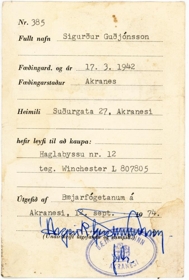 Nr. 385
Fullt nafn Sigurður Guðjónsson
Fæðingard. og ár 17. 3. 1942
Fæðingarstaður Akranes
Heimili Suðurgata 27, Akranesi
hefir leyfi til að kaupa:
Haglabyssu nr. 12
teg. Winchester L 807805
Útgefið af Bæjarfógetanum á
Akranesi, 12. sept. 1974.